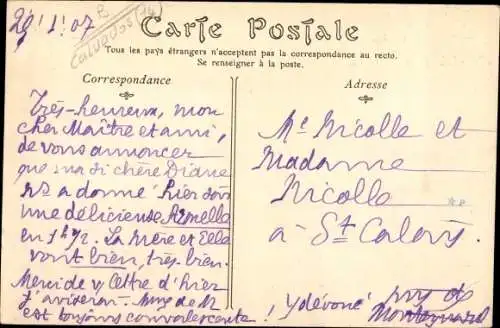 29/1.07
Calvados (14)
Carte Postale
Tous les pays étrangers n'acceptent pas la correspondance au recto.
Se renseigner à la poste.
Correspondance
Très-heureux, mon
cher Maître et ami,
de vous annoncer
que ma si chère Diane
ns a donné hier soir
une délicieuse Armelle
en 1h 1/2. La Mère et Elle
vont bien, très bien.
Merci de v/ lettre d'hier
J'aviserai - Mme de M
est toujours convalescente!
Y dévoué
Adresse
Me Nicolle et
Madame
Nicolle
à St Calais.